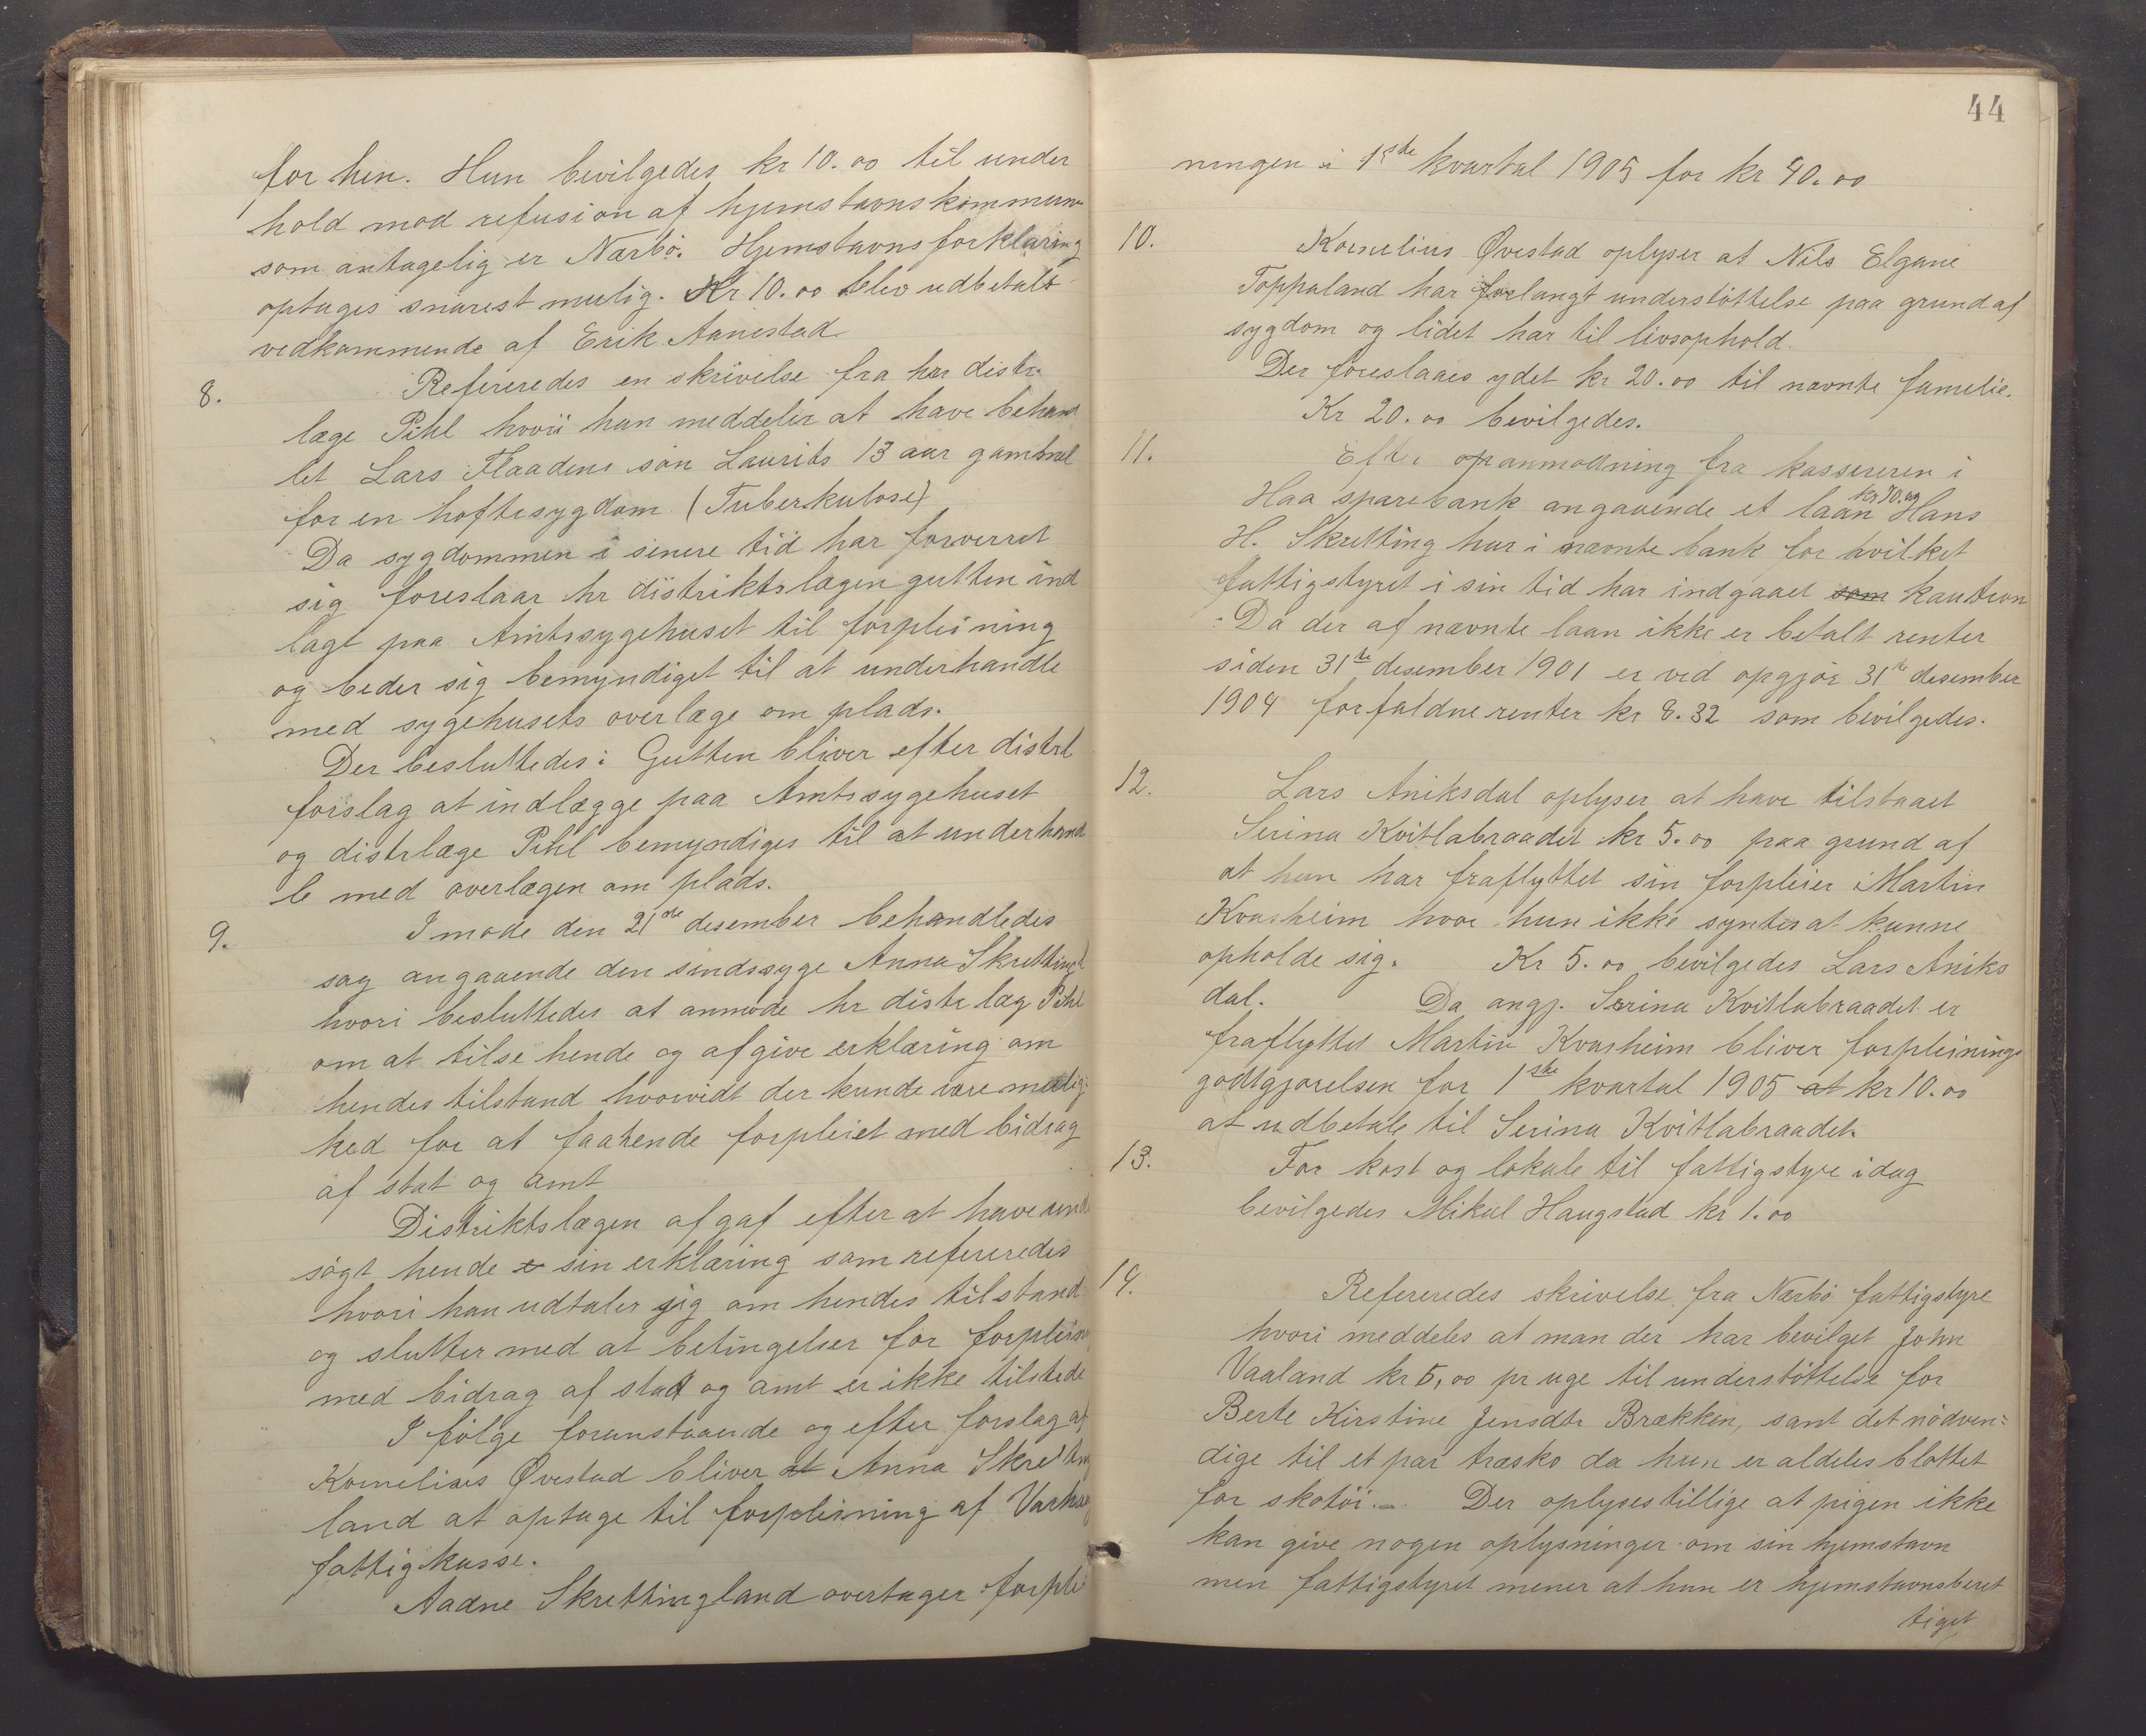 for hen. Hun bevilgedes kr 10.00 til under
hold mod refusion af hjemstavnskommun
som antagelig er Nærbø. Hjemstavnsforklaring
optages snarest mulig. Kr 10.00 blev udbetalt
vedkommende af Erik Aanestad.
8. Refereredes en skrivelse fra hr distr.
læge Pihl hvori han meddeler at have behand
let Lars Flaadens søn Laurits 13 aar gammel
for en hoftesygdom (Tuberkulose)
Da sygdommen i senere tid har forverret
sig foreslaar hr distriktslægen gutten ind
lagt paa Amtssygehuset til forpleining
og beder sig bemyndiget til at underhandle
med sygehusets overlæge om plads.
Der besluttedes: Gutten bliver efter distrl
forslag at indlægge paa Amtssygehuset
og distrlæge Pihl bemyndiges til at underhand
le med overlægen om plads.
9. I møde den 21de desember behandledes
sag angaaende den sindssyge Anna Skrettingl
hvori besluttedes at anmode hr distr læg Pihl
om at tilse hende og afgive erklæring om
hendes tilstand hvorvidt der kunde være mulig
hed for at faa hende forpleiet med bidrag
af stat og amt
Distriktslægen afgaf efter at have und
søgt hende sin erklæring som refereredes
hvori han udtaler sig om hendes tilstand
og slutter med at betingelser for forplein
med bidrag af stat og amt er ikke tilstede
I følge foranstaaende og efter forslag af
Kornelius Øvestad bliver at Anna Skretting
land at optage til forpleining af Varhaug
fattigkasse.
Aadne Skrettingland overtager forplei
44
ningen i 1ste kvartal 1905 for kr 40.00
10. Kornelius Øvestad oplyser at Nils Elgane
Toppaland har forlangt understøttelse paa grund af
sygdom og lidet har til livsophold.
Der foreslaaes ydet kr 20.00 til nævnte familie.
Kr 20.00 bevilgedes.
11. Efter op anmodning fra kassereren i
Haa sparebank angaaende et laan kr 70.00 Hans
H. Skretting har i nævnte bank for hvilket
fattigstyret i sin tid har indgaaet som kaution
. Da der af nævnte laan ikke er betalt renter
siden 31te desember 1901 er ved opgjør 31te desember
1904 forfaldne renter kr 8.32 som bevilgedes.
12. Lars Aniksdal oplyser at have tilstaaet
Serina Kvitlabraadet kr 5.00 paa grund af
at hun har fraflyttet sin forpleier Martin
Kvasheim hvor hun ikke syntes at kunne
opholde sig. Kr 5.00 bevilgedes Lars Aniks
dal. Da angj. Serina Kvitlabraadet er
fraflyttet Martin Kvasheim bliver forpleinings
godtgjørelsen for 1ste kvartal 1905 at kr 10.00
at udbetale til Serina Kvitlabraadet.
13. For kost og lokale til fattigstyre idag
bevilgedes Mikal Haugstad kr 1.00
14. Refereredes skrivelse fra Nærbø fattigstyre
hvori meddeles at man der har bevilget John
Vaaland kr 5,00 pr uge til understøttelse for
Berte Kirstine Jensdtr Brækken, samt det nødven=
dige til et par træsko da hun er aldeles blottet
for skotøi.- Der oplyses tillige at pigen ikke
kan give nogen oplysninger om sin hjemstavn
men fattigstyret mener at hun er hjemstavnsberet
tiget